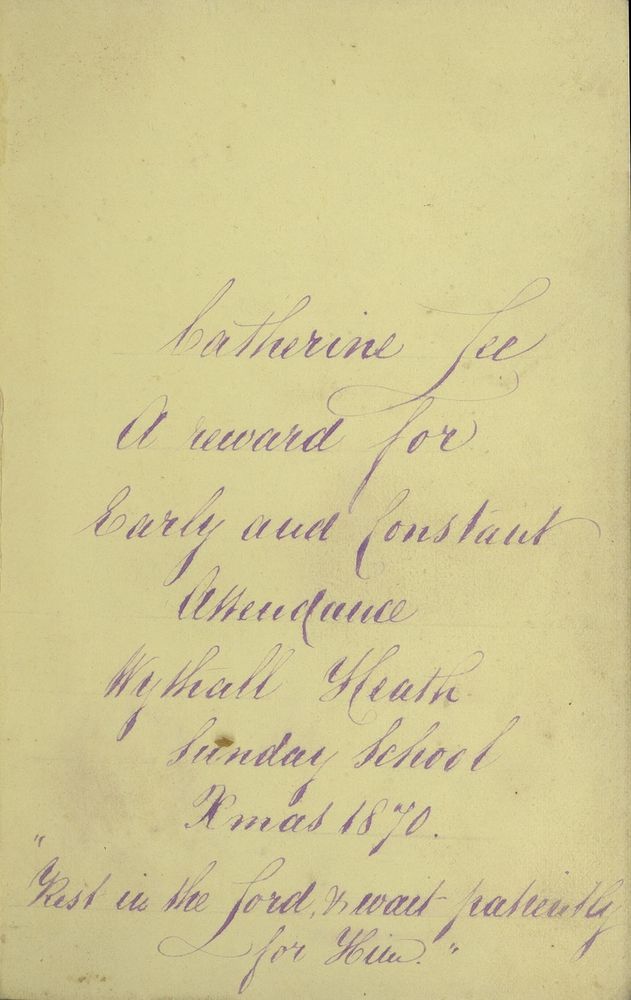 Catherine Lee
A reward for
Early and Constant
Attendance
Wythall Heath
Sunday School
Xmas 1870.
"Rest in the Lord, & wait patiently
for Him."